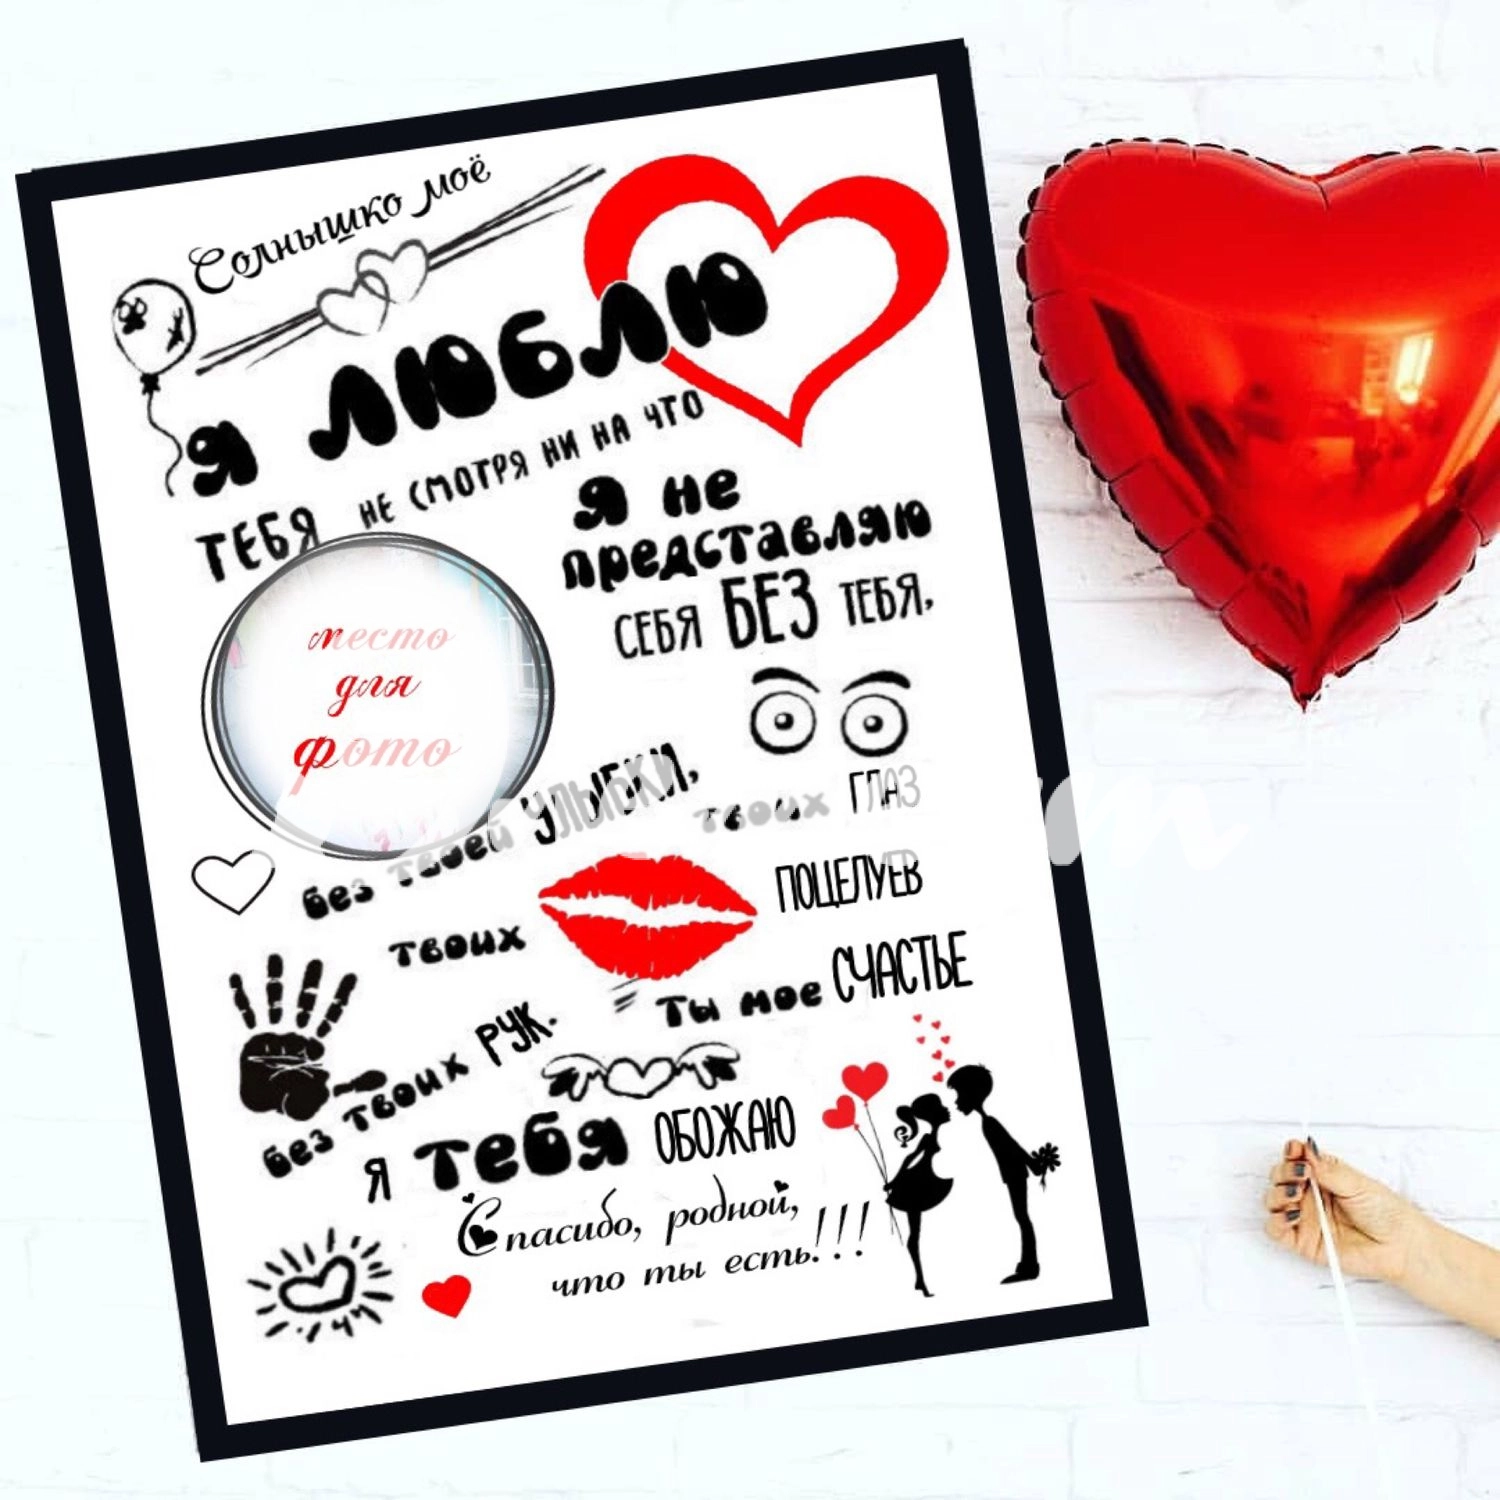 Солнышко моё
Я люблю
тебя не смотря ни на что
Я не
представляю
себя БЕЗ тебя,
место
для
фото
без твоей улыбки,
твоих глаз
твоих поцелуев
без твоих рук.
Ты мое счастье
Я тебя обожаю
Спасибо, родной,
что ты есть!!!